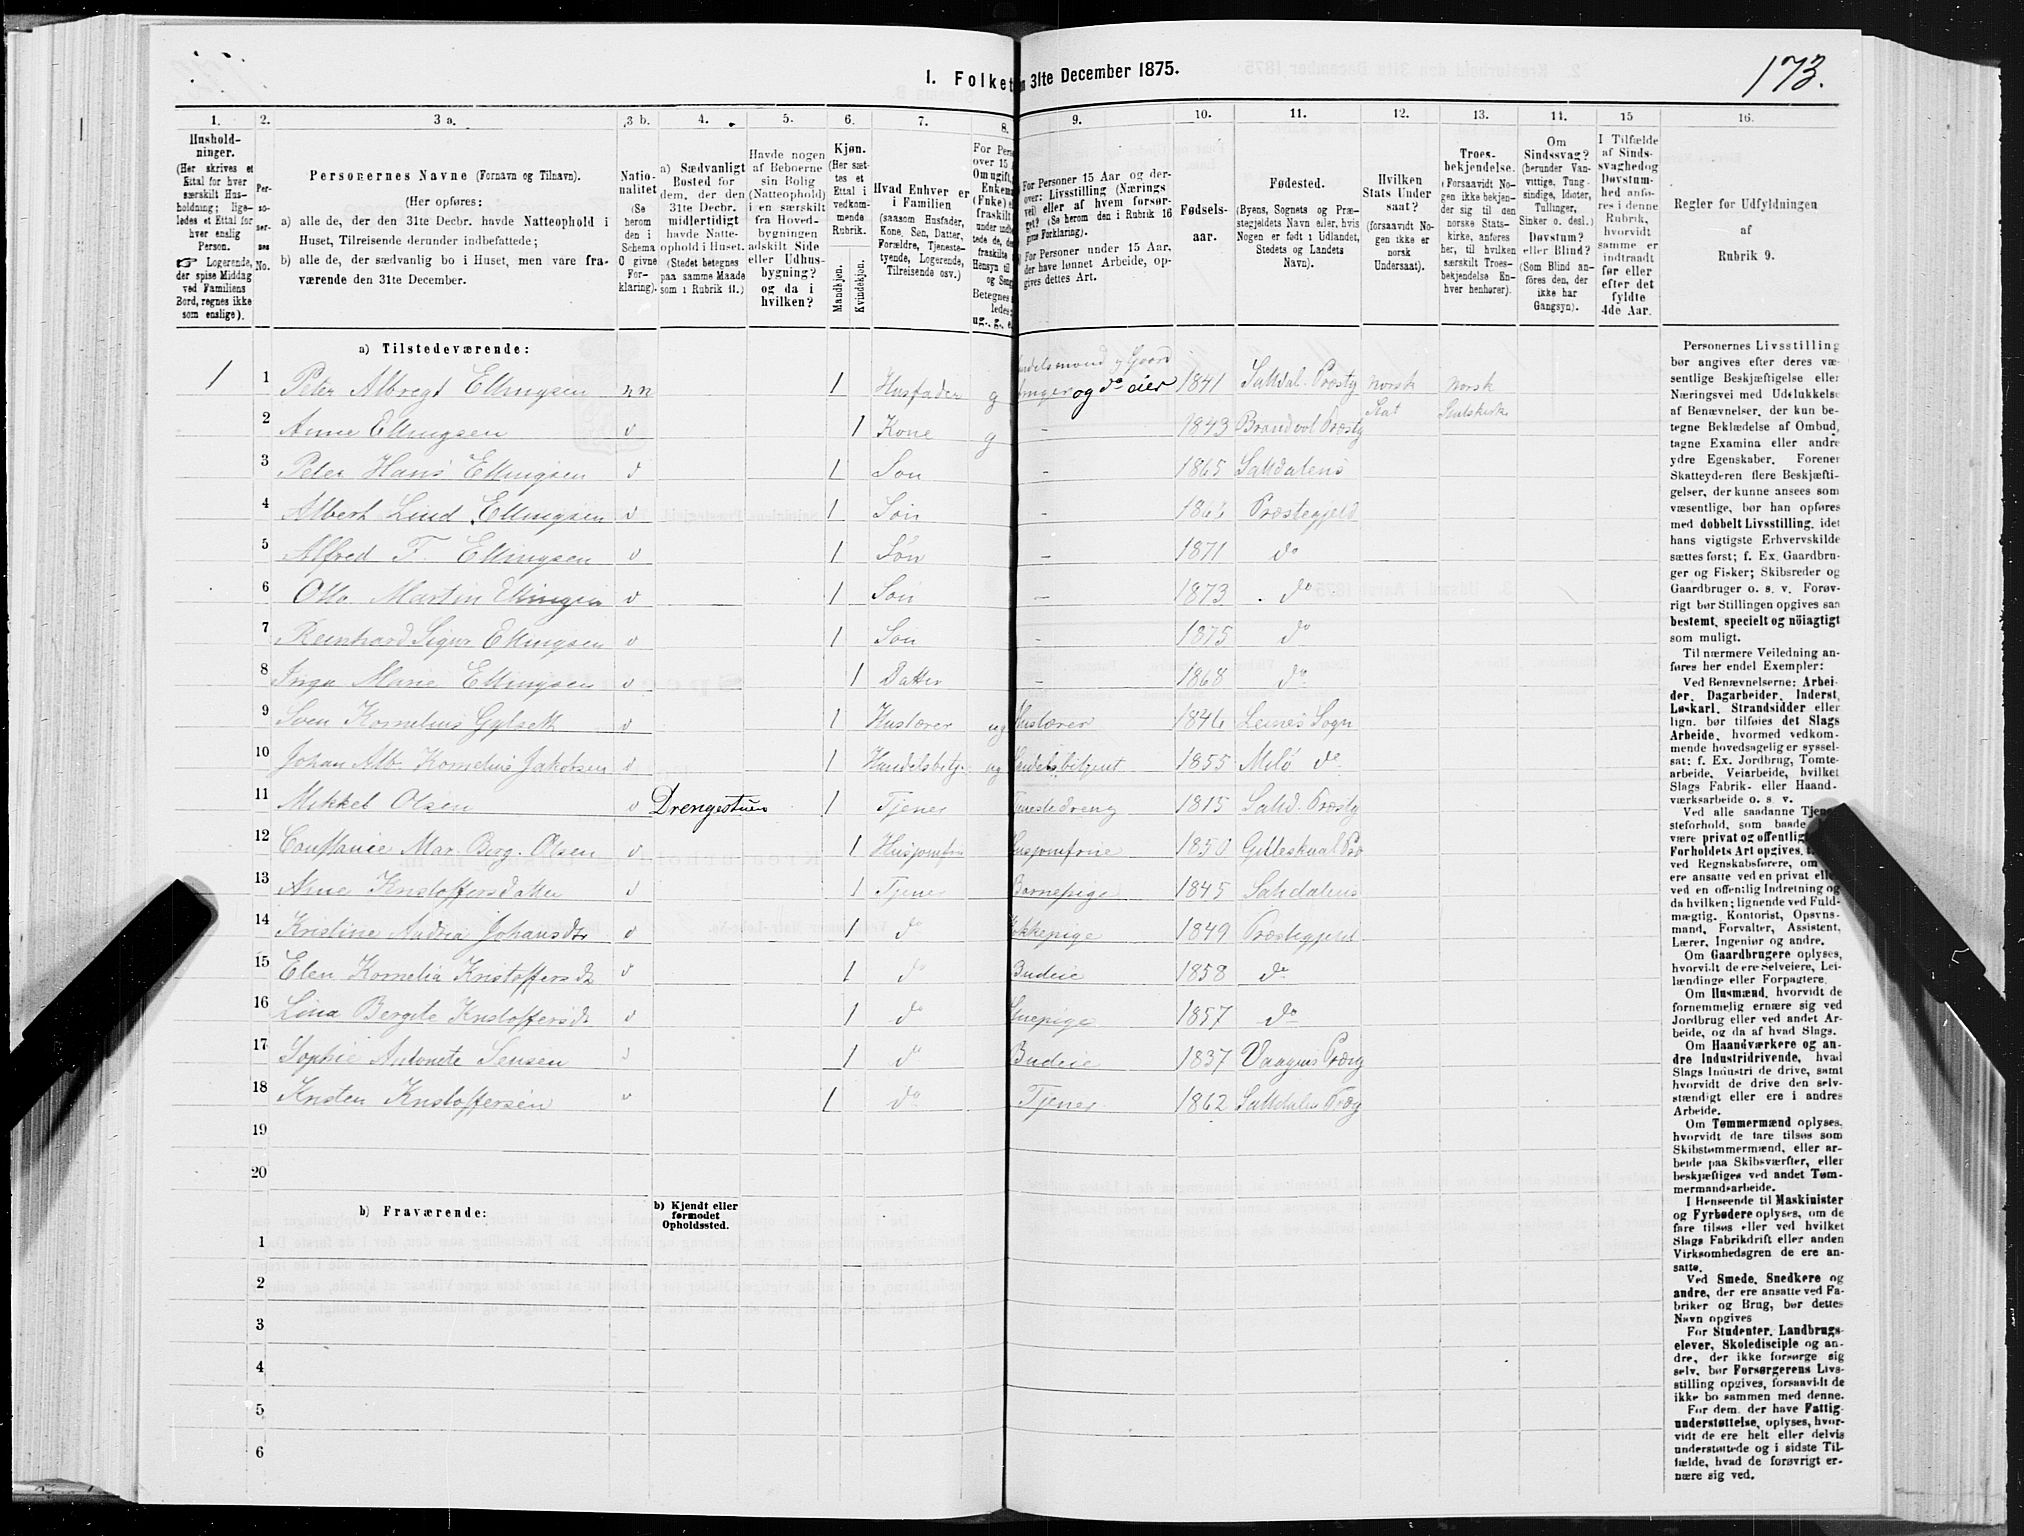 173.
I. Folket
n 31te December 1875.
1.
2.
3 a.
3 b.
4.
5.
6.
7.
8.
9.
10.
11.
12.
13.
14.
15
16.
Hushold-
ninger.
(Her skrives et
Ettal for hver
særskilt Hus-
holdning; lige-
ledes et Ettal for
hver enslig
Person.
☞ Logerende,
der spise Middag
ved Familiens
Bord, regnes ikke
som enslige).
Per-
so-
ser-
nes
No.
Personernes Navne (Fornavn og Tilnavn).
(Her opføres:
a) alle de, der den 31te Decbr. havde Natteophold i
Huset, Tilreisende derunder indbefattede;
b) alle de, der sædvanlig bo i Huset, men vare fra-
værende den 31te December.
Natio-
nalitet
(Se
herom
den i
Schema
C givne
For-
klaring).
a) Sædvanligt
Bosted for
dem, der den
31te Decbr.
midlertidigt
havde Natte-
ophold i Huset.
(Stedet betegnes
paa samme Maade
som i Rubrik 11.)
Havde nogen
af Beboerne
sin Bolig
(Natteophold)
i en særskilt
fra Hoved-
bygningen
adskilt Side
eller Udhus-
bygning?
og da i
hvilken?
Kjøn.
(Her sæt-
tes et
Ettal i
vedkom-
mende
Rubrik.
Mandkjøn.
Kvindekjøn.
Hvad Enhver er
i Familien
(saasom Husfader,
Kone, Søn, Datter,
Forældre, Tjeneste-
tyende, Logerende,
Tilreisende osv.)
For Perso
over 15
Om ugift,
Enkema
(Fnke) e
fraskilt
under indb
tede de, d
fraskilte
Hensyn til
og Seng
Betegnes
ledes:
ug., g., e
For Personer 15 Aar og der-
over: Livsstilling (Nærings
vei) eller af hvem forsør-
get? (Se herom den i Rubrik 16
givne Forklaring).
For Personer under 15 Aar,
der have lønnet Arbeide, op-
gives dettes Art.
Fødsels-
aar.
Fødested.
(Byens, Sognets og Præ-
stegjeldets Navn eller, hvis
Nogen er født i Udlandet,
Stedets og Landets
Navn).
Hvilken
Stats Under
saat?
(forsaavidt No-
gen ikke er
norsk
Undersaat).
Troes-
bekjendelse.
(Forsaavidt No-
gen ikke bekjen-
der sig til den
norske Stats-
kirke, anføres
her, til hvilken
særskilt Troes-
bekjendelse En-
hver henhører).
Om
Sindssvag?
(herunder Van-
vittige, Tung-
sindige, Idioter,
Tullinger,
Sinker o. desl.)
Døvstum?
eller Blind?
(Som Blind an-
føres den, der
ikke har
Gangsyn).
I Tilfælde
af Sinds-
svaghed og
Døvstum-
hed anfø-
res i denne
Rubrik,
hvorvidt
samme er
indtraadt
før eller
efter det
fyldte
4de Aar.
Regler for Udfyldningen
af
Rubrik 9.
a) Tilstedeværende:
1 1 Peter Albregt Ellingsen nn 1 Husfader g andelsmand og Gaard bruger og do eier 1841 Saltdal. Præstg norsk Stat norsk Statskirk
2 Anne Ellingsen v 1 Kone g – 1843 Brandvol Præstg
3 Peter Hans Ellingsen v 1 Søn – 1865 Saltdalens
4 Albert Lind Ellingsen v 1 Søn – 1866 Præstegjeld
5 Alfred F. Ellingsen v 1 Søn – 1871 do
6 Otto Martin Ellingsen v 1 Søn – 1873 do
7 Reinhard Sigur Ellingsen v 1 Søn – 1875 do
8 Inga Marie Ellingsen v 1 Datter – 1868 do
9 Sven Kornelius Gylseth v 1 Huslærer ug Huslærer 1846 Leines Sogn
10 Johan Alb. Kornelius Jakobsen v 1 Handelsbetj. ug andelsbetjent 1855 Melø do
11 Mikkel Olsen v Drengestuen 1 Tjener Tjenestedreng 1815 Saltd. Præstg
12 Constance Mar. Berg. Olsen v 1 Husjomfru Husjomfrue 1850 Gilleskaal Præ
13 Anne Kristoffersdatter v 1 Tjener Barnepige 1845 Saltdalens
14 Kristine Andrea Johansdtr v 1 do Kokkepige 1849 Præstegjeld
15 Elen Kornelia Kristoffersdt v 1 do Budeie 1858 do
16 Lina Bergite Kristoffersdt v 1 do Stuepige 1857 do
17 Sophie Antonete Jensen v 1 do Budeie 1837 Vaagens Præg
18 Kristen Kristoffersen v 1 do Tjener 1862 Saltdalens Præg
19
20
b) Fraværende:
b) Kjendt eller
formodet
Opholdssted.
1
2
3
4
5
6
Personernes Livsstilling
bør angives efter deres væ-
sentlige Beskjæftigelse eller
Næringsvei med Udelukkelse
af Benævnelser, der kun be-
tegne Bekledelse af Ombud,
tagne Examina eller andre
ydre Egenskaber. Forener
Skatteyderen flere Beskjæfti-
gelser, der kunne ansees som
væsentlige, bør han opføres
med dobbelt Livsstilling, idet
hans vigtigste Erhvervskilde
sættes først; f. Ex. Gaardbru-
ger og Fisker; Skibsreder og
Gaardbruger o. s. v. Forøv-
rigt bør Stillingen opgives saa
bestemt, specielt og nöiagtigt
som muligt.
Til nærmere Veiledning an-
føres her endel Exempler:
Ved Benævnelserne: Arbei-
der, Dagarbeider, Inderst,
Løskarl, Strandsidder eller
lign. bør tilføies det Slags
Arbeide, hvormed vedkom-
mende hovedsagelig er syssel-
sat: f. Ex. Jordbrug, Tomte-
arbeide, Veiarbeide, hvilket
Slags Fabrik- eller Haand-
værksarbeide o. s. v.
Ved alle saadanne Tjene-
steforhold, som baade
være privat og offentlig
Forholdets Art opgives,
ved Regnskabsførere, om
ere ansatte ved en privat eller
ved en offentlig Indretning og
da hvilken; lignende ved Fuld-
mægtig, Kontorist, Opsyns-
mand, Forvalter, Assistent,
Lærer, Ingeniør og andre.
Om Gaardbrugere oplyses,
hvorvidt de ere Selveiere, Lei-
lændinge eller Forpagtere.
Om Husmænd, hvorvidt de
fornemmelig ernære sig ved
Jordbrug eller ved andet Ar-
beide, og da af hvad Slags.
Om Haandværkere og an-
dre Industridrivende, hvad
Slags Industri de drive, samt
hvorvidt de drive den selv-
stændigt eller ere i andres
Arbeide.
Om Tømmermænd oplyses,
hvorvidt de fare tilsøs som
Skibstømmermænd, eller ar-
beide paa Skibsværfter, eller
beskjæftiges ved andet Tøm-
mermandsarbeide.
I Henseende til Maskinister
og Fyrbødere oplyses, om de
fare tilsøs eller ved hvilket
Slags Fabrikdrift eller anden
Virksomhedsgren de ere an-
satte.
Ved Smede, Snedkere og
andre, der ere ansatte ved Fa-
briker og Brug, bør dettes
Navn opgives
For Studenter, Landbrugs-
elever, Skoledisciple og an-
dre, der ikke forsørge sig
selv, bør Forsørgerens Livs-
stilling opgives, forsaavidt de
ikke bo sammen med denne.
For dem, der have Fattig-
understøttelse, oplyses, hvor-
vidt de ere helt eller delvis
understøttede og i sidste Til-
fælde, hvad de forøvrigt er-
nære sig ved.